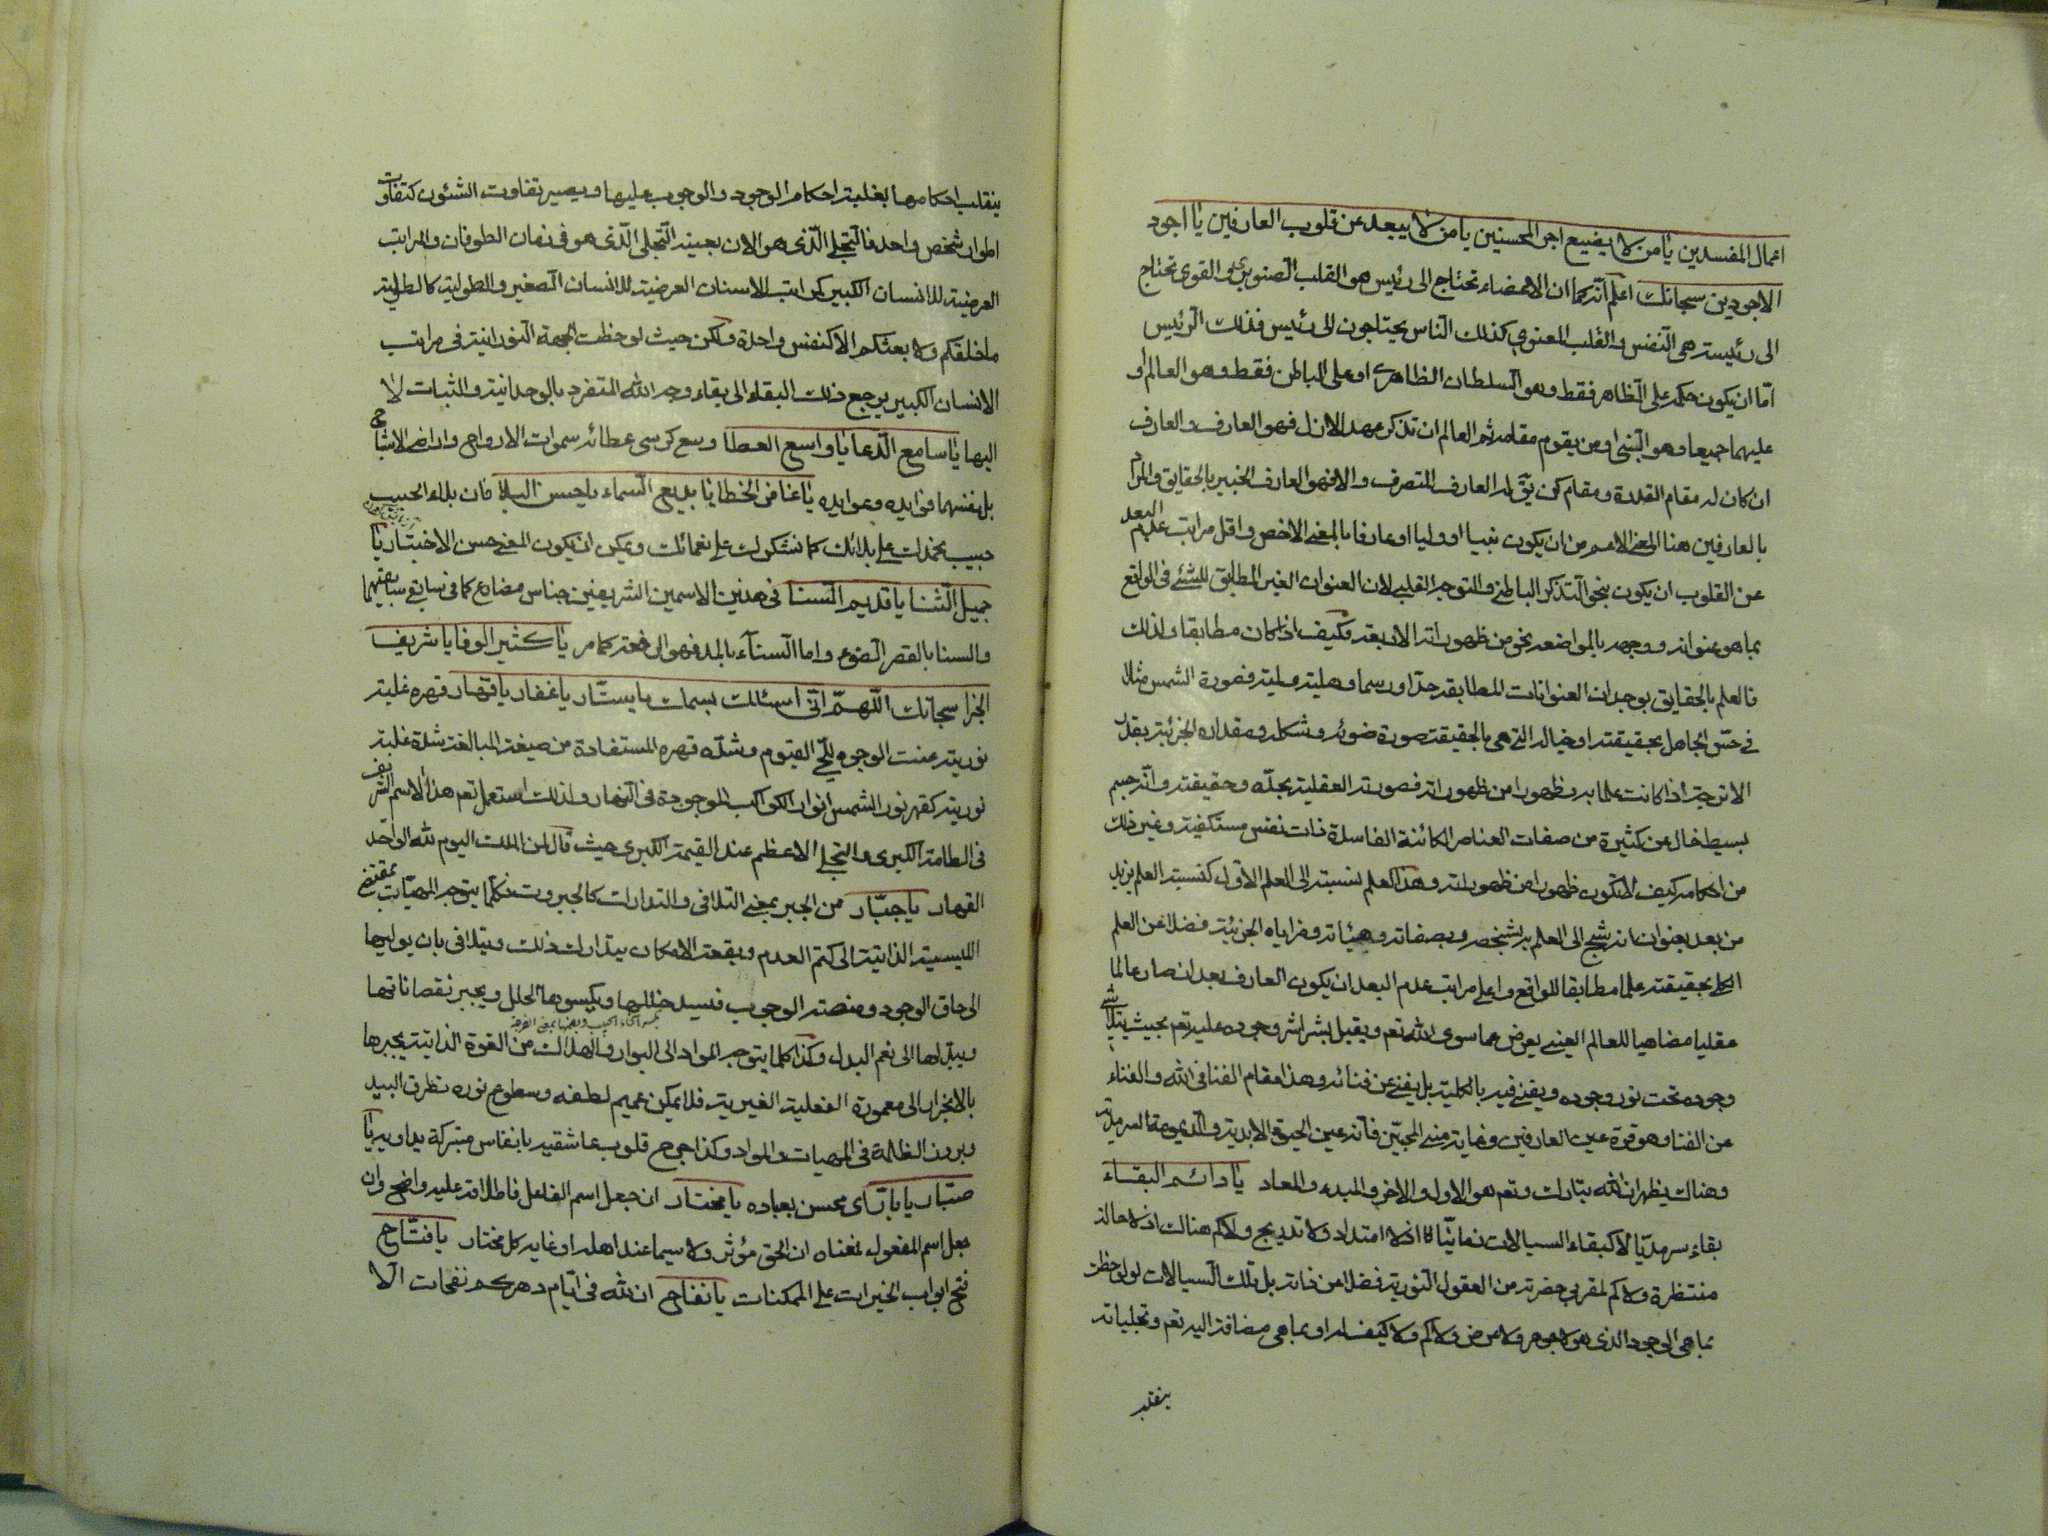 اعمال المفسدين يا من لا يضيع اجر المحسنين يا من لا يبعد عن قلوب العارفين يا اجود
الاجودين سبحانك اعلم انه كما ان الاعضاء تحتاج الى رئيس هو القلب الصنوبرى و القوى تحتاج
الى رئيسة هى النفس و القلب المعنوى كذلك الناس يحتاجون الى رئيس فذلك الرئيس
اما ان يكون حكمه على الظاهر فقط وهو السلطان الظاهرى او على الباطن فقط وهو العالم او
عليهما جميعا وهو النبى او من يقوم مقامه ثم العالم ان تذكر عهد الازل فهو العارف و العارف
ان كان له مقام القدرة و مقام كن يقال له العارف المتصرف و الا فهو العارف الخبير بالحقايق و المراد
بالعارفين هنا المعنى الاعم من ان يكون نبيا او وليا او عارفا بالمعنى الاخص و اقل مراتب عدم البعد
عن القلوب ان يكون بنحو التذكر الباطنى و التوجه القلبى لان العنوان الغير المطابق للشئ فى الواقع
بما هو عنوانه و وجهه بالمواضعة نحو من ظهوراته الاربعة وكيف اذا كان مطابقا و لذلك
فالعلم بالحقايق بوجدان العنوانات المطابقة حدا و رسما و هلية و لمية فصورة الشمس مثلا
فى حس الجاهل بحقيقتها و خياله التى هى بالحقيقة صورة ضوئه و شكله و مقداره الجزئية بقدر
الاترجة اذا كانت علما به و ظهورا من ظهوراته فصورته العقلية بحده و حقيقته و انه جسم
بسيط خال عن كثيرة من صفات العناصر الكائنة الفاسدة ذات نفس مستكفية و غير ذلك
من احكامه كيف لا تكون ظهورا من ظهوراته و هذا العلم نسبته الى العلم الاول كنسبة العلم بزيد
من بعد بعنوان انه شبح الى العلم به بشخصه و بصفاته و هيئاته و مزاياه الجزئية فضلا عن العلم
الكلى بحقيقته علما مطابقا للواقع و اعلى مراتب عدم البعد ان يكون العارف بعد ان صار عالما
عقليا مضاهيا للعالم العينى يعرض عما سوى الله تعم و يقبل بشراشر وجوده عليه تعم بحيث يتلاشى
وجوده تحت نور وجوده و يفنى فيه بالكلية بل يفنى عن فنائه و هذا مقام الفنا فى الله و الفناء
عن الفنا و هو قرة عين العارفين و نهاية منى المحبين فانه عين الحيوة الابدية و الديمومة السرمدية
و هناك يظهر ان الله تبارك و تعم هو الاول و الاخر و المبدء و المعاد يا دائم البقاء
بقاء سرمديا لا كبقاء السيالات زمانيا اذ لا امتداد ولا تدريج و لا كم هناك اذ لا حالة
منتظرة ولا كم لمقربى حضرته من العقول النورية فضلا من ذاته بل تلك السيالات لو لوحظت
بما هى الوجود الذى هو لا جوهر ولا عرض ولا كم ولا كيف له او بما هى مضافة اليه تعم و تجلياته
ينقلب
ينقلب احكامها بغلبة احكام الوجود و الوجوب عليها و يصير تفاوت الشئون كتفاوت
اطوار شخص واحد فالتجلى الذى هو الان بعينه التجلى الذى هو فى زمان الطوفان و المراتب
العرضية للانسان الكبير كمراتب الاسنان العرضية للانسان الصغير و الطولية كالطولية
ما خلقكم ولا بعثكم الا كنفس واحدة ولكن حيث لوحظت الجهة النورانية فى مراتب
الانسان الكبير يرجع ذلك البقاء الى بقاء وجه الله المتفرد بالوحدانية و الثبات لا
اليها يا سامع الدعا يا واسع العطا وسع كرسى عطائه سموات الارواح و اراضى الاشباح
بل نفسهما فوايده و عوايده يا غافر الخطايا يا بديع السماء يا حسن البلا فان بلاء الحبيب
حبيب نحمدك على بلائك كما نشكرك على نعمائك و يمكن ان يكون المعنى حسن الاختبار يا
جميل الثنا يا قديم السنا فى هذين الاسمين الشريفين جناس مضارع كما فى سابقى سابقيهما
والسنا بالقصر الضوء و اما السناء بالمد فهو الرفعة كما مر يا كثير الوفا يا شريف
الجزا سبحانك اللهم انى اسئلك بسمك يا ستار يا غفار يا قهار قهره غلبة
نورية عنت الوجوه للحى القيوم و شدة قهره المستفادة من صيغة المبالغة شدة غلبة
نورية كقهر نور الشمس انوار الكواكب الموجودة فى النهار و لذلك استعمل تعم هذا الاسم الشريف
فى الطامة الكبرى و التجلى الاعظم عند القيمة الكبرى حيث قال لمن الملك اليوم لله الواحد
القهار يا جبار من الجبر بمعنى التلافى و التدارك كالجبروت فكلما يتوجه المهيات بمقتضى
الليسية الذاتية الى كتم العدم و بقعة الامكان يتدارك ذلك و يتلافى بان يوليها
الى حاق الوجود و منصة الوجوب فيسد خللها و يكسوها الحلل و يجبر نقصاناتها
و يبدلها الى نعم البدل و كذا كلما يتوجه المواد الى البوار و الهلاك من القوة الذاتية يجبرها
بالانجرار الى معمورة الفعلية الغيرية فلا يمكن عميم لطفه و سطوع نوره تطرق البيد
و بروز الظلمة فى المهيات و المواد و كذا جروح قلوب عاشقيه بانفاس متبركة يداويه يا
صبار يا بار اى محسن بعباده يا مختار ان جعل اسم الفاعل فاطلاقه عليه واضح و ان
جعل اسم المفعول فمعناه ان الحق مؤثر و لا سيما عند اهله او غاية كل مختار يا فتاح
فتح ابواب الخيرات على الممكنات يا نفاح ان لله فى ايام دهركم نفحات الا